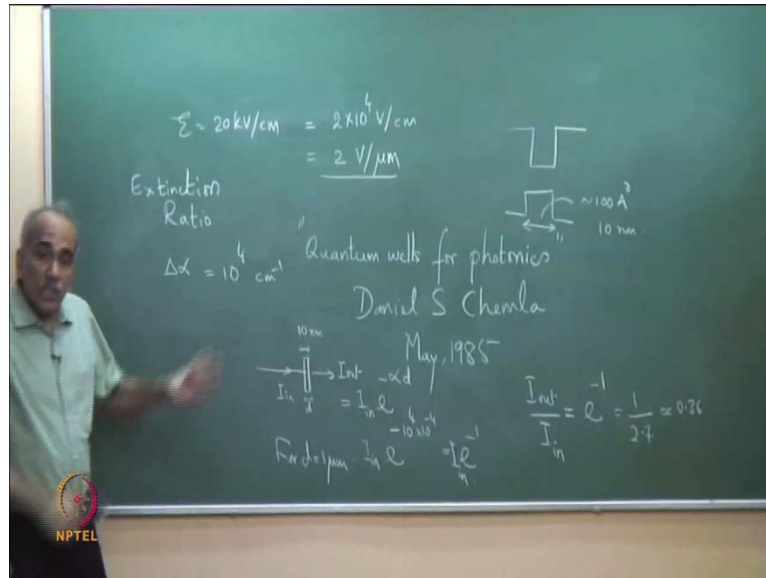 ξ = 20 kV/cm = 2×10⁴ V/cm
= 2 V/μm
Extinction
Ratio
~100 A°
10 nm.
Δα = 10⁴ cm⁻¹
"Quantum wells for photonics"
Daniel S Chemla
May, 1985
10 nm
I_in d → I_out = I_in e^{-αd}
For d=1μm. I_in e^{-10⁴×10⁻⁴} = I_in e⁻¹
I_out/I_in = e⁻¹ = 1/2.7 ≃ 0.36
NPTEL